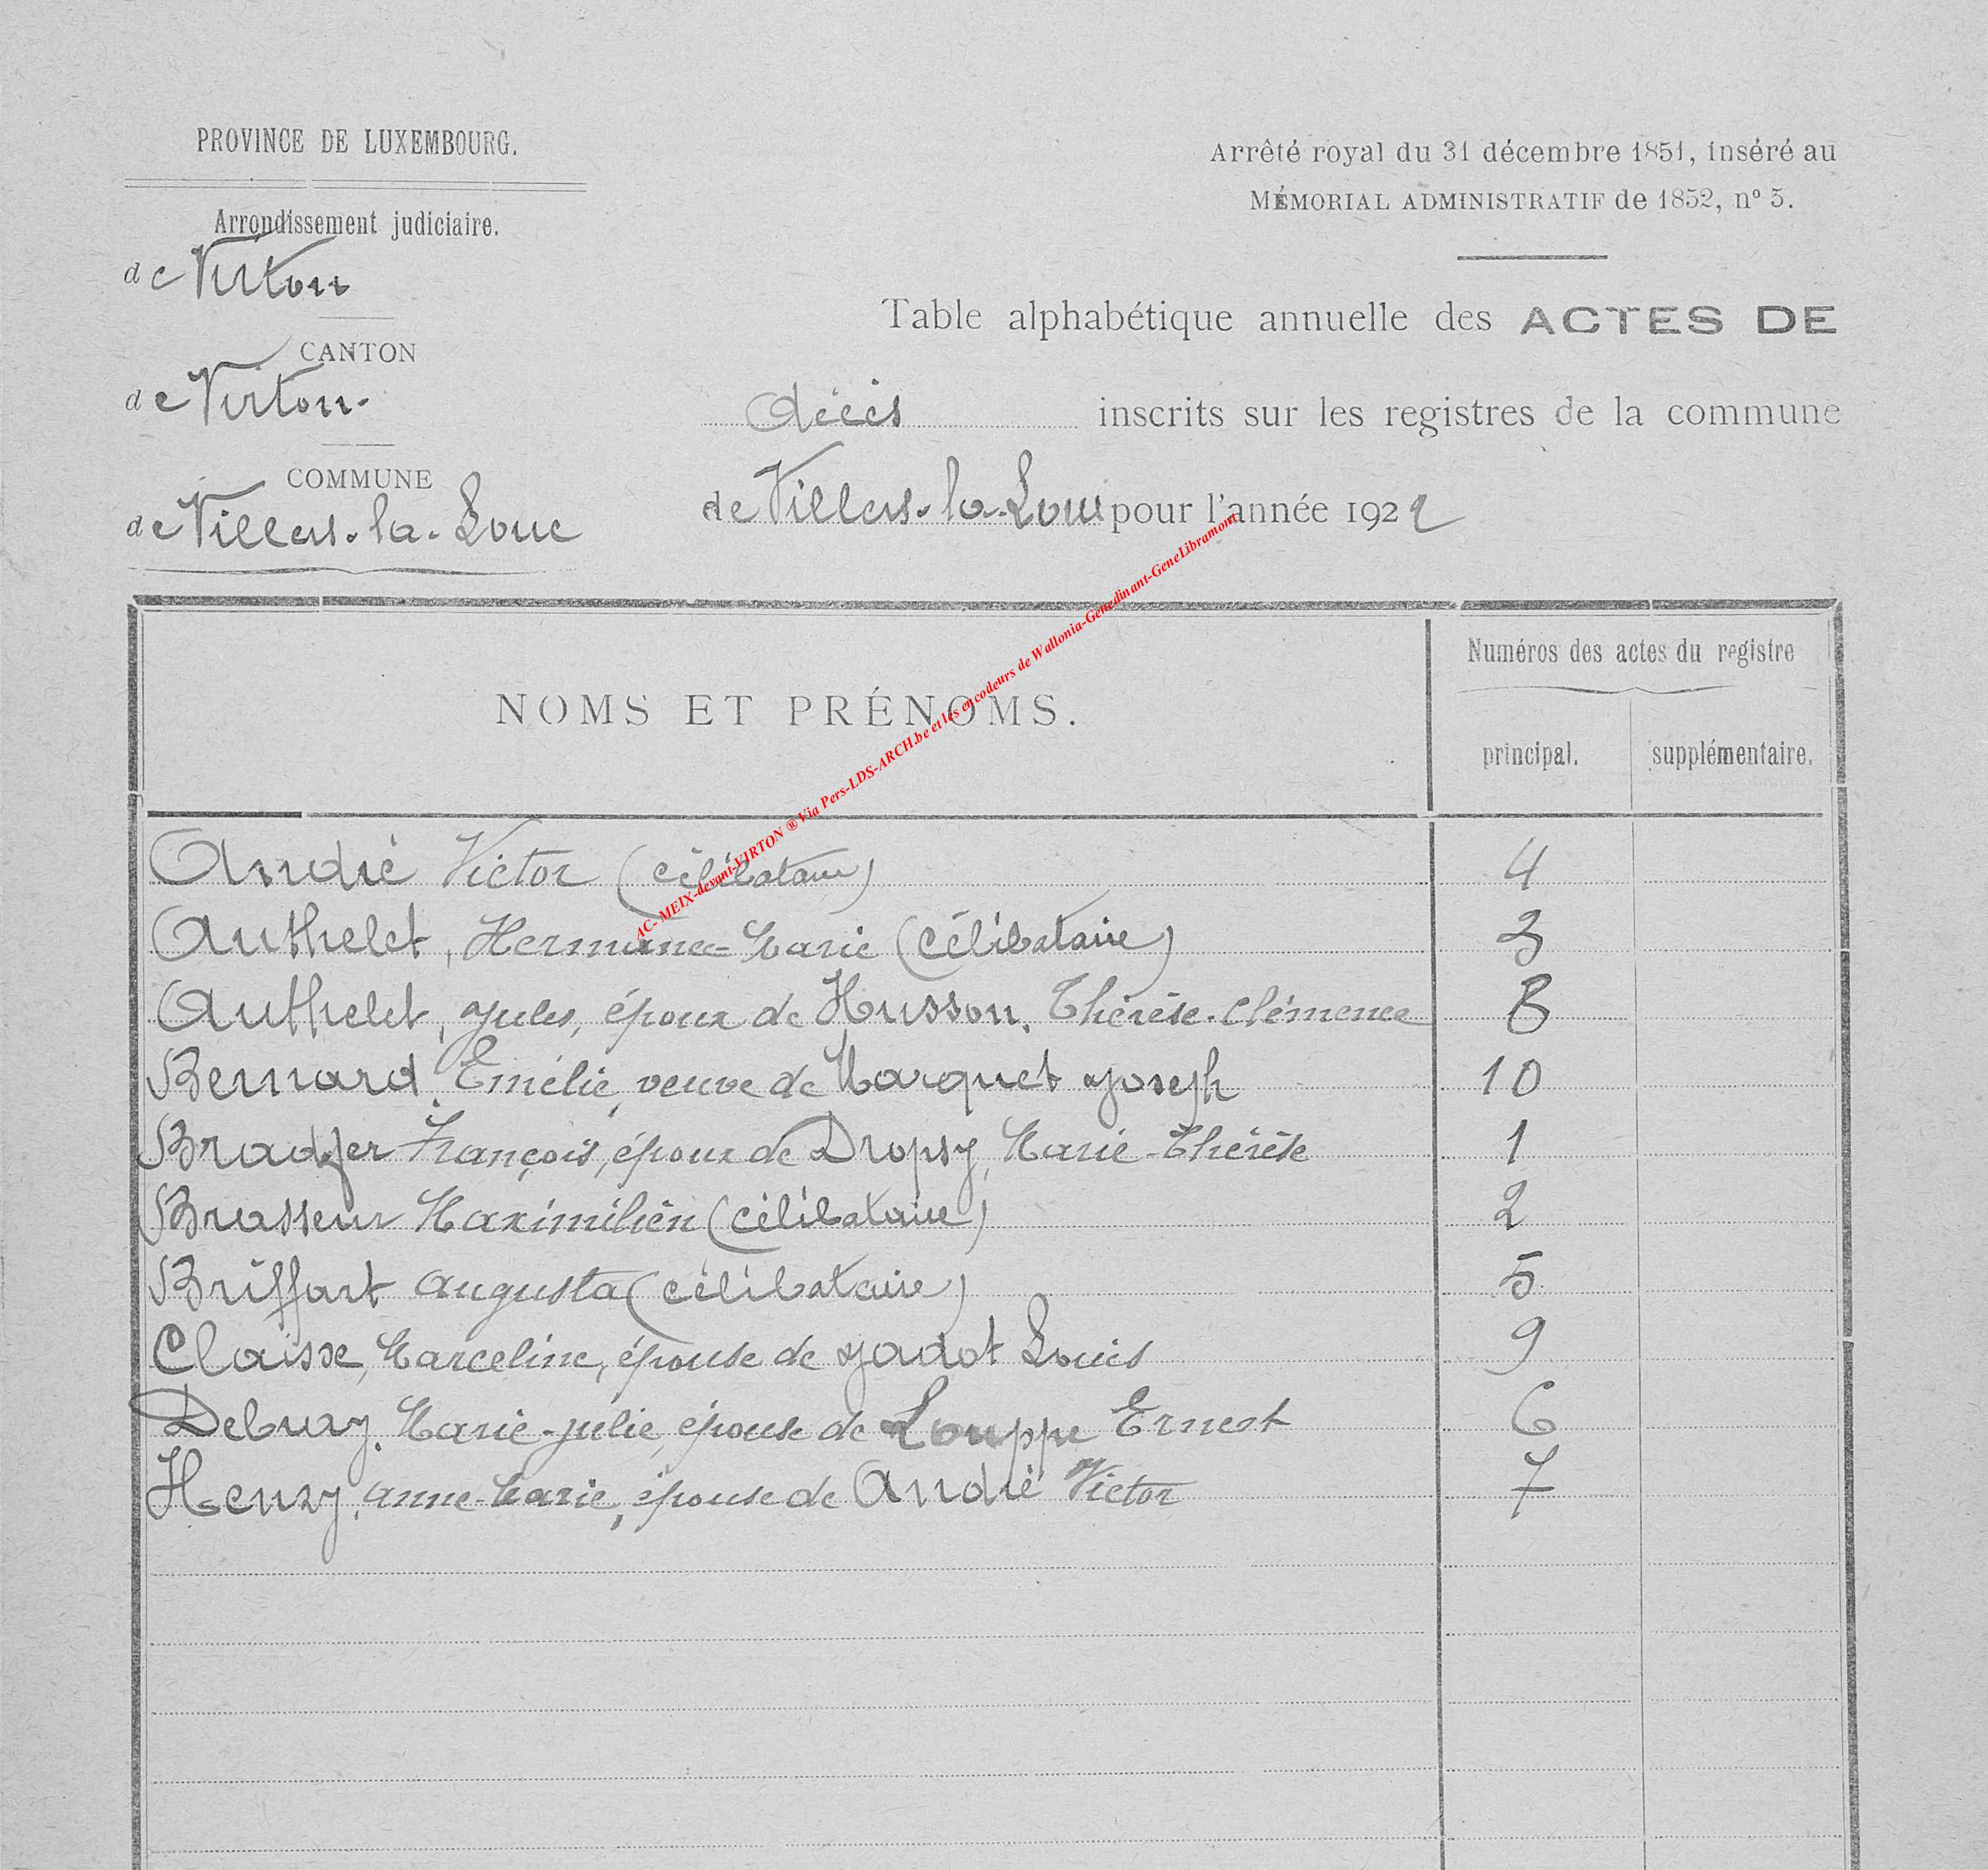 PROVINCE DE LUXEMBOURG.
Arrondissement judiciaire.
de Virton
CANTON
de Virton.
COMMUNE
de Villers-la-Loue
Arrêté royal du 31 décembre 1851, inséré au
MÉMORIAL ADMINISTRATIF de 1852, nº 5.
Table alphabétique annuelle des ACTES DE
décès inscrits sur les registres de la commune
de Villers-la-Loue pour l'année 1922
AC- MEIX-devant-VIRTON ® Via Pers-LDS-ARCH.be et les encodeurs de Wallonia-Genedinant-GeneLibramont
NOMS ET PRÉNOMS.
Numéros des actes du registre
principal. supplémentaire.
André Victor (célibataire) 4
Authelet, Hermance-Marie (célibataire) 3
Authelet, Jules, époux de Husson, Thérèse-Clémence 8
Bernard, Emélie, veuve de Marquet Joseph 10
Bradfer François, époux de Dropsy, Marie-Thérèse 1
Brasseur Maximilien (célibataire) 2
Briffart Augusta (célibataire) 5
Claisse, Marceline, épouse de Jadot Louis 9
Debray, Marie-Julie, épouse de Louppe Ernest 6
Henry, Anne-Marie, épouse de André Victor 7